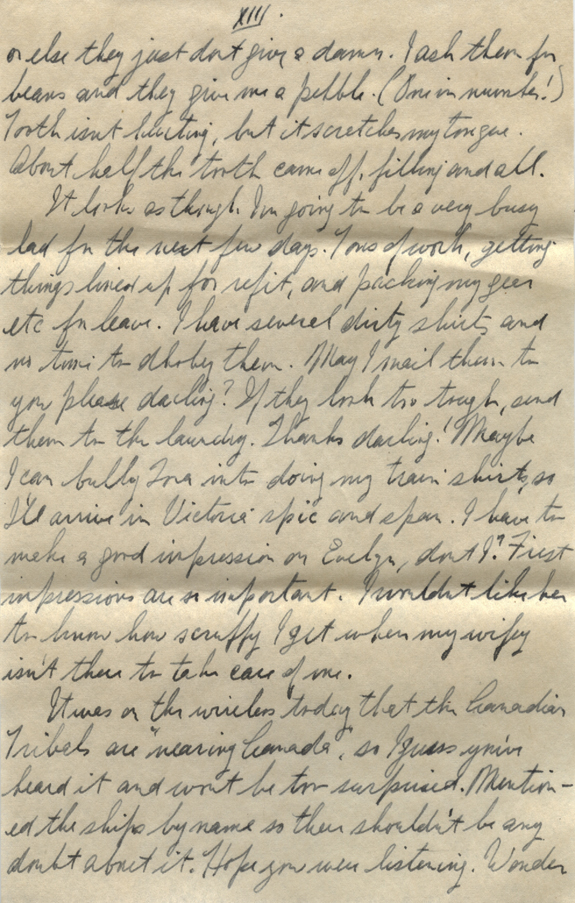 XIII.
or else they just don't give a damn. I ask them for
beans and they give me a pebble. (One in number!)
Tooth isn't hurting, but it scratches my tongue.
About half the tooth came off, filling and all.
It looks as though I'm going to be a very busy
lad for the next few days. Tons of work, getting
things lined up for refit, and packing my gear
etc for leave. I have several dirty shirts and
no time to dhobey them. May I mail them to
you please darling? If they look too tough, send
them to the laundry. Thanks darling! Maybe
I can bully into doing my train shirts, so
I'll arrive in Victoria spic and span. I have to
make a good impression on Evelyn, don't I? First
impressions are so important. I wouldn't like her
to know how scruffy I get when my wifey
isn't there to take care of me.
It was on the wireless today that the Canadian
Tribals are "nearing Canada", so I guess you've
heard it and won't be too surprised. Mention-
ed the ships by name so there shouldn't be any
doubt about it. Hope you were listening. Wonder